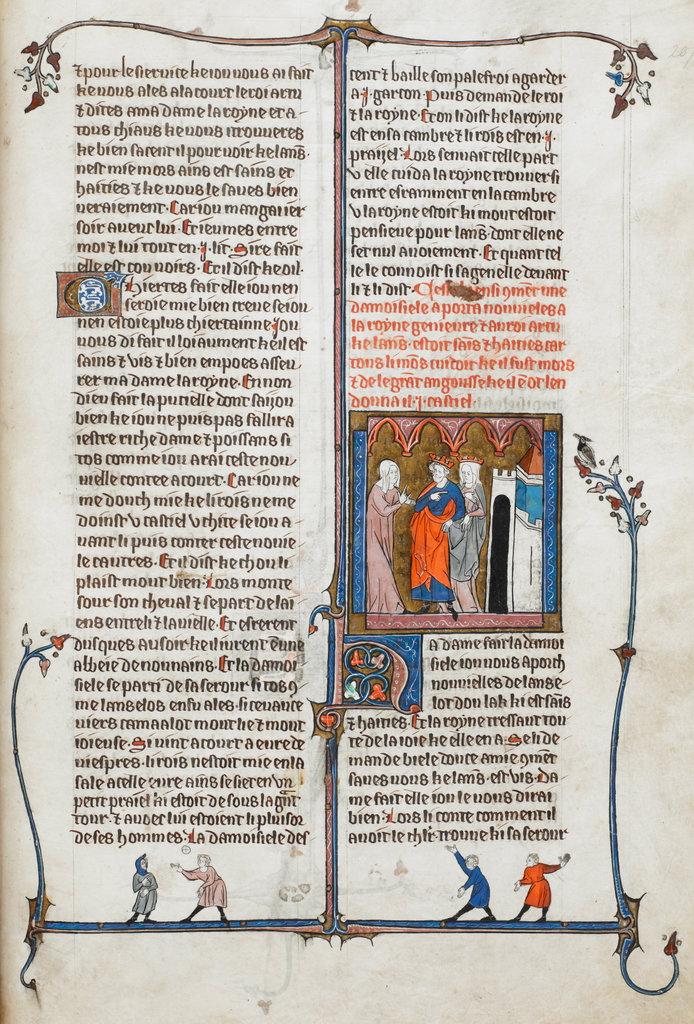 ⁊ pour le siervice ke iou vous ai fait
ke vous ales a la court le roi artu
⁊ dites a ma dame la royne et a
tous chiaus ke vous i trouveres
ke bien sacent il pour voir ke lans̄.
nest mie mors ains est sains et
haities ⁊ ke vous le saves bien
veraiement. Car iou mangai ier
soir avenc lui. Et ieumes entre
moi ⁊ lui tout en .j. lit. Sire fait
elle est cou voirs. Et il dist ke oil.
Chiertes fait elle iou nen
serdie mie bien creue se iou
nen estoie plus chiertainne. Jou
vous di fait il loiaument ke il est
sains ⁊ vis ⁊ bien en poes asseu
rer ma dame la royne. En non
dieu fait la pucielle dont sai iou
bien ke iou ne puis pas fallir a
iestre riche dame ⁊ poissans si
tos comme iou arai ceste nou
vielle contee a court. Car iou ne
me douch mie ke li rois ne me
doinst .v. castiel .v. chite se iou a
vant li puis conter ceste novie
le cautres. Et il dist ke chou li
plaist mout bien. Lors monte
sour son cheval ⁊ se part de lai
ens entre li ⁊ la vielle. Et esrerent
dusques au soir ke il vinrent dune
abbeie de nounains. Et la damoi
siele se parti de sa serour si tos 9
me lanselos en fu ales. si cevauce
viers camaalot mout lie ⁊ mout
ioieuse. Si vint a court a eure de
viespres. li rois nestoit mie en la
sale a celle eure ains se siet en vn
petit praiel ki estoit desous la gñt
tour. ⁊ avoec lui estoient li pluisor
de ses hommes. La damoisiele des
cent ⁊ baille son palefroi a garder
a .j. garcon. Puis demande le roi
⁊ la royne. Et on li dist ke la royne
est en sa cambre ⁊ li rois est en .j.
praiiel. Lors sen vait celle part
v elle cuida la royne trouver si
entre esramment en la cambre
v la royne estoit ki mout estoit
pensieue pour lans̄. dont elle ne
set nul avoiement. Et quant cel
le le connoist si sagenelle devant
li ⁊ li dist. Cest ensi 9ment une
damoisiele aporta nouvieles a
la royne genieure ⁊ au roi artu
ke lans̄. estoit sais̄ ⁊ haities car
tous li mōs cuidoit ke il fust mors
⁊ de le grāt angousse ke il ē ot len
donna il .j. castiel.
Ma dame fait la damoi
siele iou vous aporch
nouvieles de lanse
lot dou lak ki est sais̄
⁊ haities. Et la royne tressaut tou
te de la ioie ke elle en a. Se li de
mande biele douce amie 9ment
saves vous ke lans̄. est vis. Da
me fait elle iou le vous dirai
bien. Lors li conte comment il
avoit le chlr̄ trouve ki sa serour